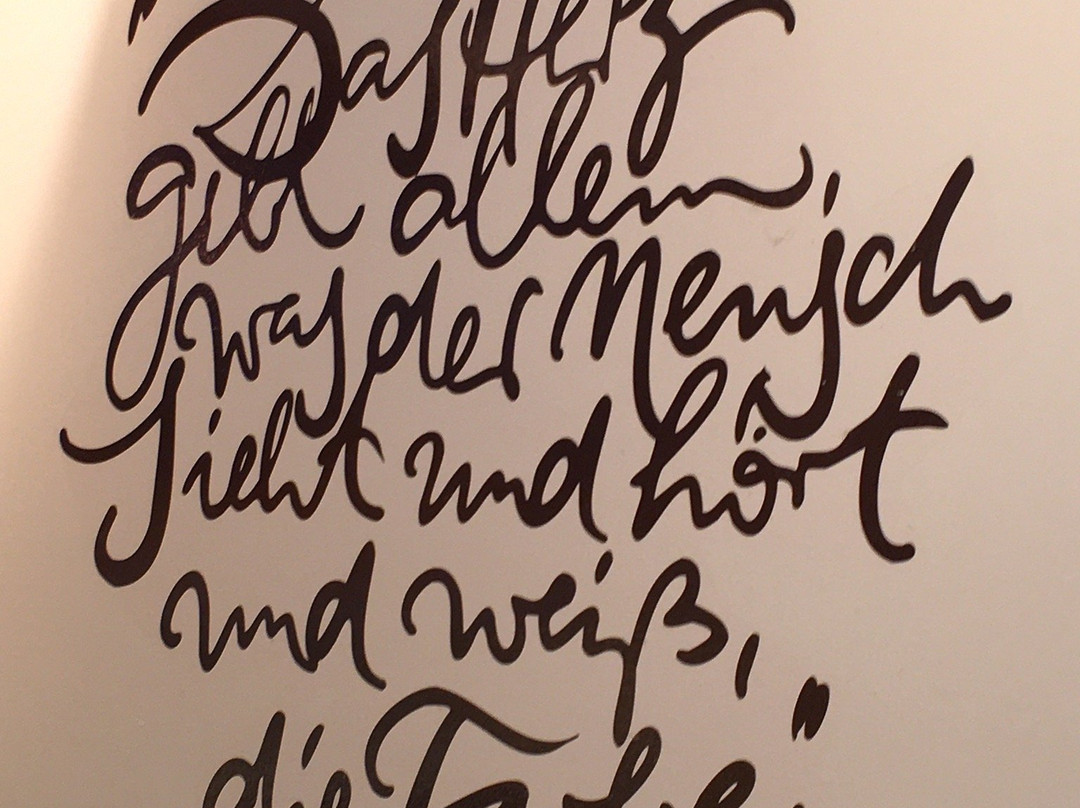 Das Herz
gibt allem,
was der Mensch
sieht und hört
und weiß,
die Farbe."